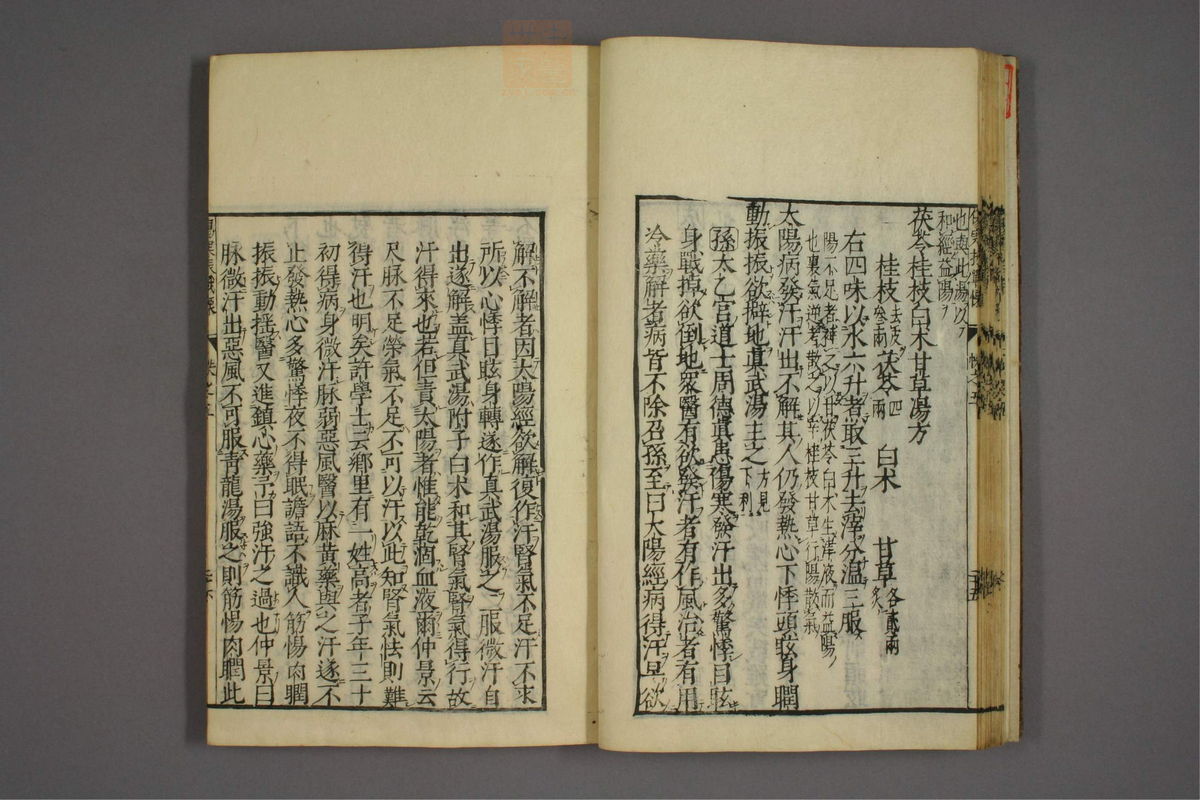 也與此湯以
和經益陽
茯苓桂枝白术甘草湯方
桂枝去皮參兩 茯苓四兩 白术 甘草各貳兩炙
右四味以水六升煮取三升去滓分溫三服
陽不足者補之以甘茯苓白术生津液而益陽
也裏氣逆者散之以辛桂枝甘草行陽散氣
太陽病發汗汗出不解其人仍發熱心下悸頭眩身瞤
動振振欲擗地眞武湯主之方見下利
孫太乙宮道士周德眞患傷寒發汗出多驚悸目眩
身戰掉欲倒地衆醫有欲發汗者有作風治者有用
冷藥解者病皆不除召孫至曰太陽經病得汗早欲
解不解者因太陽經欲解復作汗腎氣不足汗不來
所以心悸目眩身轉遂作真武湯服之一服微汗自
出遂解盖真武湯附子白术和其腎氣腎氣得行故
汗得來也若但責太陽者惟能乾涸血液爾仲景云
尺脉不足榮氣不足不可以汗以此知腎氣怯則難
得汗也明矣許學士云鄉里有一姓高者子年三十
初得病身微汗脉弱惡風醫以麻黃藥與之汗遂不
止發熱心多驚悸夜不得眠譫語不識人筋惕肉瞤
振振動揺醫又進鎮心藥予曰強汗之過也仲景曰
脉微汗出惡風不可服青龍湯服之則筋惕肉瞤此